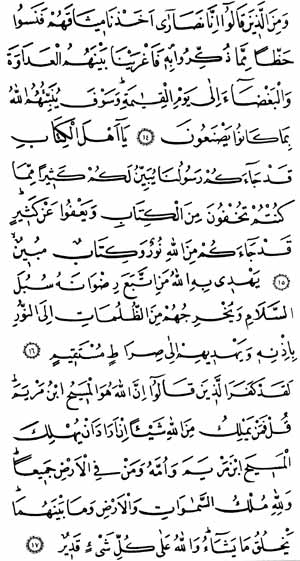 وَمِنَ الَّذِينَ قَالُوٓا إِنَّا نَصَارٰٓى أَخَذْنَا مِيثَاقَهُمْ فَنَسُوا
حَظًّا مِمَّا ذُكِّرُوا بِهِ فَأَغْرَيْنَا بَيْنَهُمُ الْعَدَاوَةَ
وَالْبَغْضَآءَ إِلٰى يَوْمِ الْقِيٰمَةِ وَسَوْفَ يُنَبِّئُهُمُ اللهُ
بِمَا كَانُوا يَصْنَعُونَ ﴿١٤﴾ يَآ أَهْلَ الْكِتَابِ
قَدْ جَآءَكُمْ رَسُولُنَا يُبَيِّنُ لَكُمْ كَثِيرًا مِمَّا
كُنْتُمْ تُخْفُونَ مِنَ الْكِتَابِ وَيَعْفُوا عَنْ كَثِيرٍ
قَدْ جَآءَكُمْ مِنَ اللهِ نُورٌ وَكِتَابٌ مُبِينٌ
﴿١٥﴾ يَهْدِي بِهِ اللهُ مَنِ اتَّبَعَ رِضْوَانَهُ سُبُلَ
السَّلَامِ وَيُخْرِجُهُمْ مِنَ الظُّلُمَاتِ إِلَى النُّورِ
بِإِذْنِهِ وَيَهْدِيهِمْ إِلٰى صِرَاطٍ مُسْتَقِيمٍ ﴿١٦﴾
لَقَدْ كَفَرَ الَّذِينَ قَالُوٓا إِنَّ اللهَ هُوَ الْمَسِيحُ ابْنُ مَرْيَمَ
قُلْ فَمَنْ يَمْلِكُ مِنَ اللهِ شَيْئًا إِنْ أَرَادَ أَنْ يُهْلِكَ
الْمَسِيحَ ابْنَ مَرْيَمَ وَأُمَّهُ وَمَنْ فِي الْأَرْضِ جَمِيعًا
وَلِلّٰهِ مُلْكُ السَّمٰوَاتِ وَالْأَرْضِ وَمَا بَيْنَهُمَا
يَخْلُقُ مَا يَشَآءُ وَاللهُ عَلٰى كُلِّ شَيْءٍ قَدِيرٌ ﴿١٧﴾